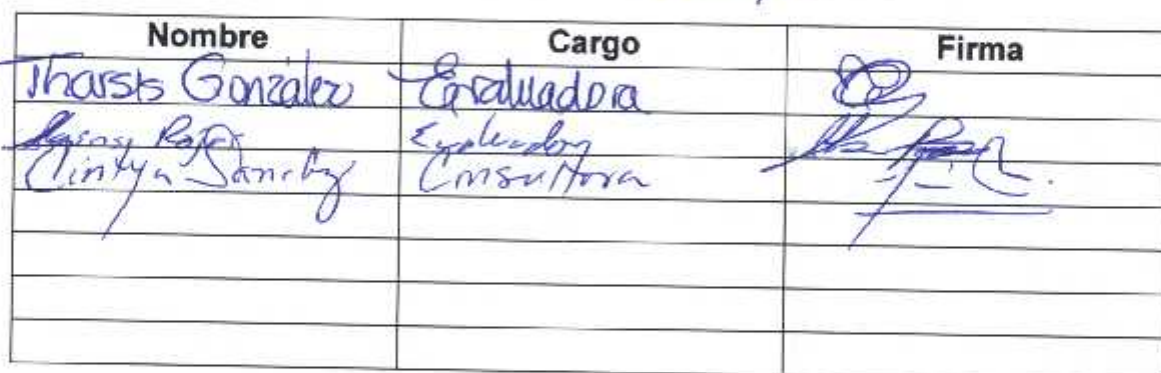 Nombre Cargo Firma
Tharsis González Evaluadora
Rojas Evaluador
Cintya Sánchez Consultora